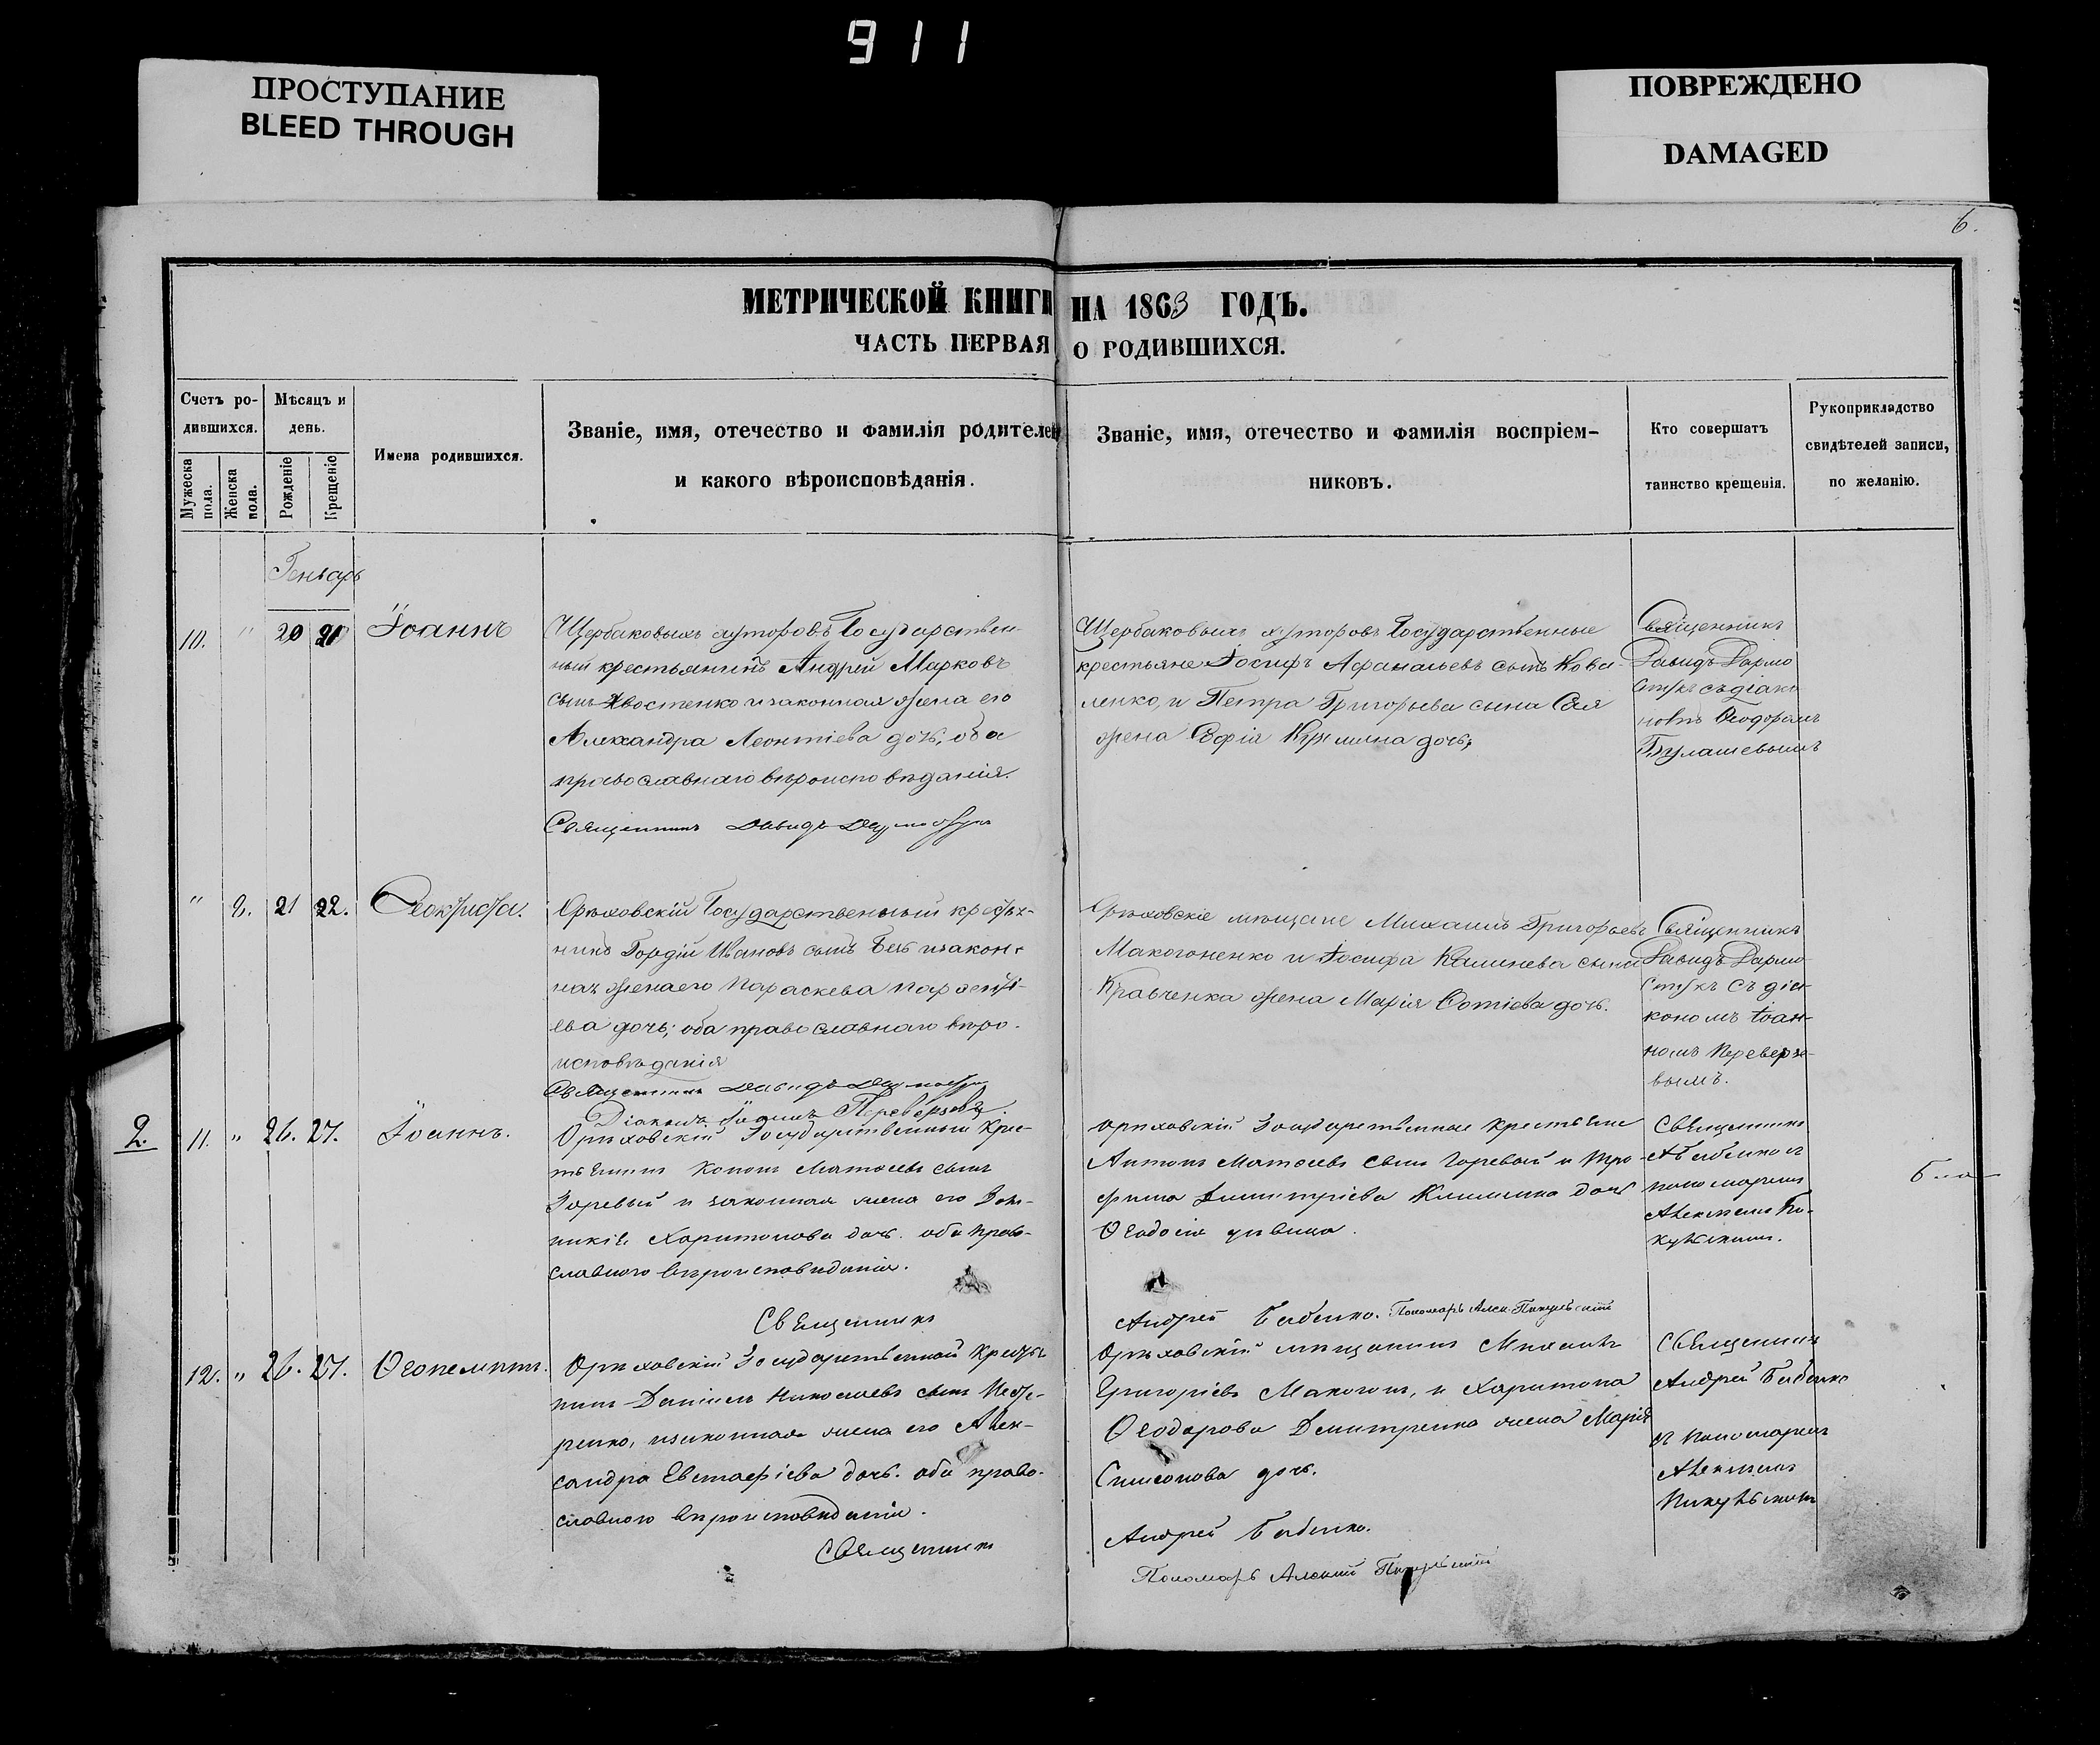 911
ПРОСТУПАНИЕ
BLEED THROUGH
ПОВРЕЖДЕНО
DAMAGED
6.
МЕТРИЧЕСКОЙ КНИГИ НА 1863 ГОДЪ.
ЧАСТЬ ПЕРВАЯ О РОДИВШИХСЯ.
Счетъ ро-
дившихся.
Мужеска пола.
Женска пола.
Мѣсяцъ и
день.
Рожденіе
Крещеніе
Имена родившихся.
Званіе, имя, отечество и фамилія родителей
и какого вѣроисповѣданія.
Званіе, имя, отечество и фамилія воспріем-
никовъ.
Кто совершатъ
таинство крещенія.
Рукоприкладство
свидѣтелей записи,
по желанію.
Генварь
10. " 20 21 Іоаннъ
Щербаковыхъ хуторовъ Государствен-
ный крестьянинъ Андрей Марковъ
сынъ Хвостенко и законная жена его
Александра Леонтіева дочь, оба
православнаго вѣроисповѣданія.
Священникъ Давидъ
Щербаковыхъ хуторовъ Государственные
крестьяне Іосифъ Афанасьевъ сынъ Кова-
ленко, и Петра Григорьева сына
жена Софія дочь,
Священникъ
Давидъ Дармо
стукъ съ діако
номъ Ѳеодоромъ
Булашевымъ
" 2. 21 22. Ѳеоктиста.
Орѣховскій Государственный крестья-
нинъ Гордій Ивановъ сынъ и закон-
ная жена его Параскева
ева дочь; оба православнаго вѣро-
исповѣданія
Священникъ Давидъ
Діаконъ Іоаннъ Переверзевъ.
Орѣховскіе мѣщане Михаилъ Григорьевъ
Макогоненко и Іосифа сына
Кравченка жена Марія Фотіева дочь.
Священникъ
Давидъ Дармо-
стукъ съ діа-
кономъ Іоан-
номъ Переверзе-
вымъ.
2.
11. " 26. 27. Іоаннъ.
Орѣховскій Государственный крес-
тьянинъ Кононъ Матѳеевъ сынъ
Горевый и законная жена его Дом-
никія Харитонова дочь. оба право-
славного вѣроисповѣданія.
Священникъ
Орѣховскій Государственные крестьяне
Антонъ Матѳеевъ сынъ Горевый и Тро-
фима Димитріева Клименка дочь
Ѳеодосія дѣвица.
Андрей Бабенко. Пономарь Алек. Пикульскій
Священникъ
А Бабенко съ
пономаремъ
Алексѣемъ Пи-
кульскимъ.
12. " 26. 27. Ѳеопемптъ.
Орѣховскій Государственной крестья
нинъ Даніилъ Николаевъ сынъ Несте-
ренко, и законная жена его Алек-
сандра Евстафіева дочь. оба право-
славного вѣроисповѣданія.
Священникъ
Орѣховскій мѣщанинъ Михаилъ
Григоріевъ Макогонъ, и Харитона
Ѳеодорова Дмитренка жена Марія
Симеонова дочь.
Андрей Бабенко.
Пономарь Алексій Пикульскій
Священникъ
Андрей Бабенко
съ пономаремъ
Алексѣемъ
Пикульскимъ